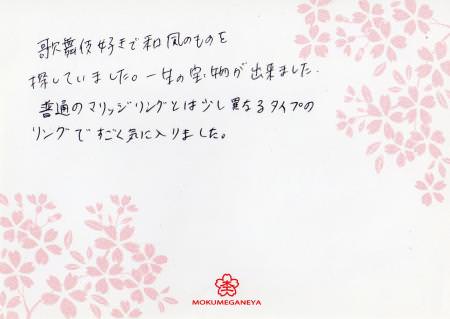 歌舞伎好きで和風のものを
探していました。一生の宝物が出来ました.
普通のマリッジリングとは少し異なるタイプの
リングですごく気に入りました。
MOKUMEGANEYA